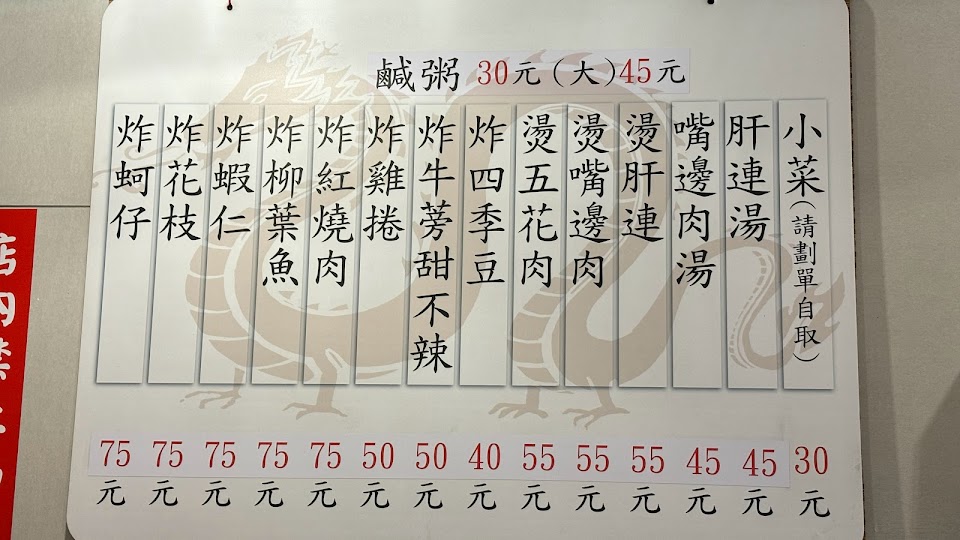 鹹粥 30元(大)45元
小菜(請劃單自取)
30元
肝連湯
45元
嘴邊肉湯
45元
燙肝連
55元
燙嘴邊肉
55元
燙五花肉
55元
炸四季豆
40元
炸牛蒡甜不辣
50元
炸雞捲
50元
炸紅燒肉
75元
炸柳葉魚
75元
炸蝦仁
75元
炸花枝
75元
炸蚵仔
75元
店內禁止